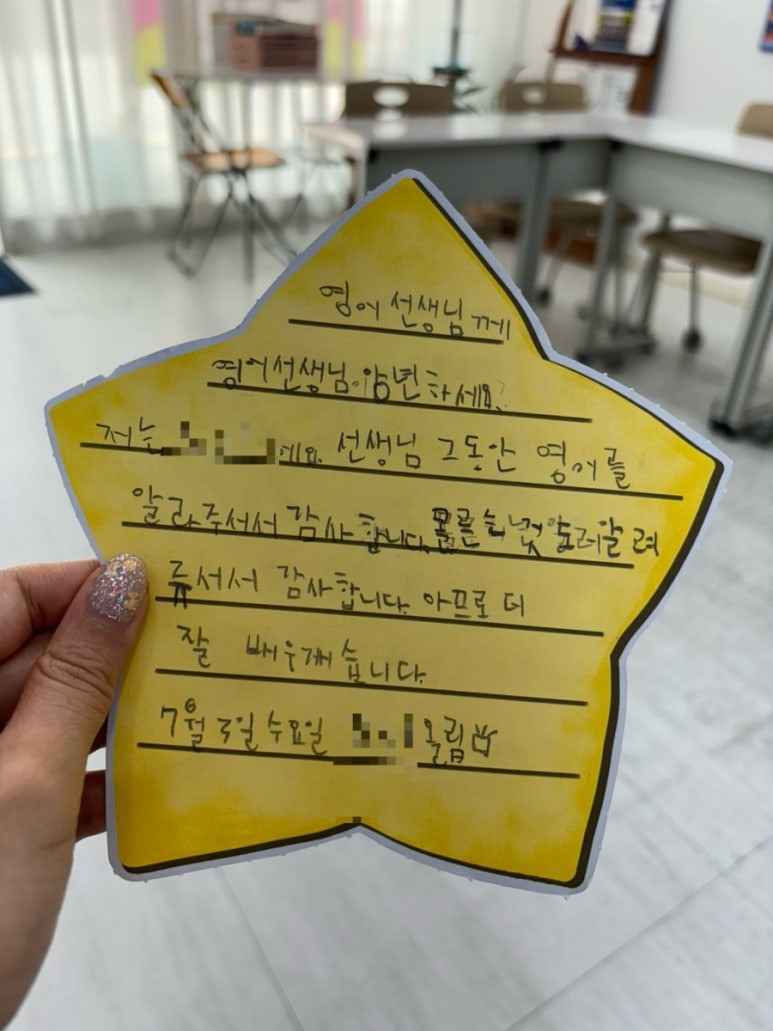 영어 선생님께
영어선생님 안녕하세요?
저는 예요. 선생님 그동안 영어를
알랴주서서 감사합니다. 알려
쥬서서 감사합니다. 아프로 더
잘 배우게습니다.
7월 3일 수요일 올림